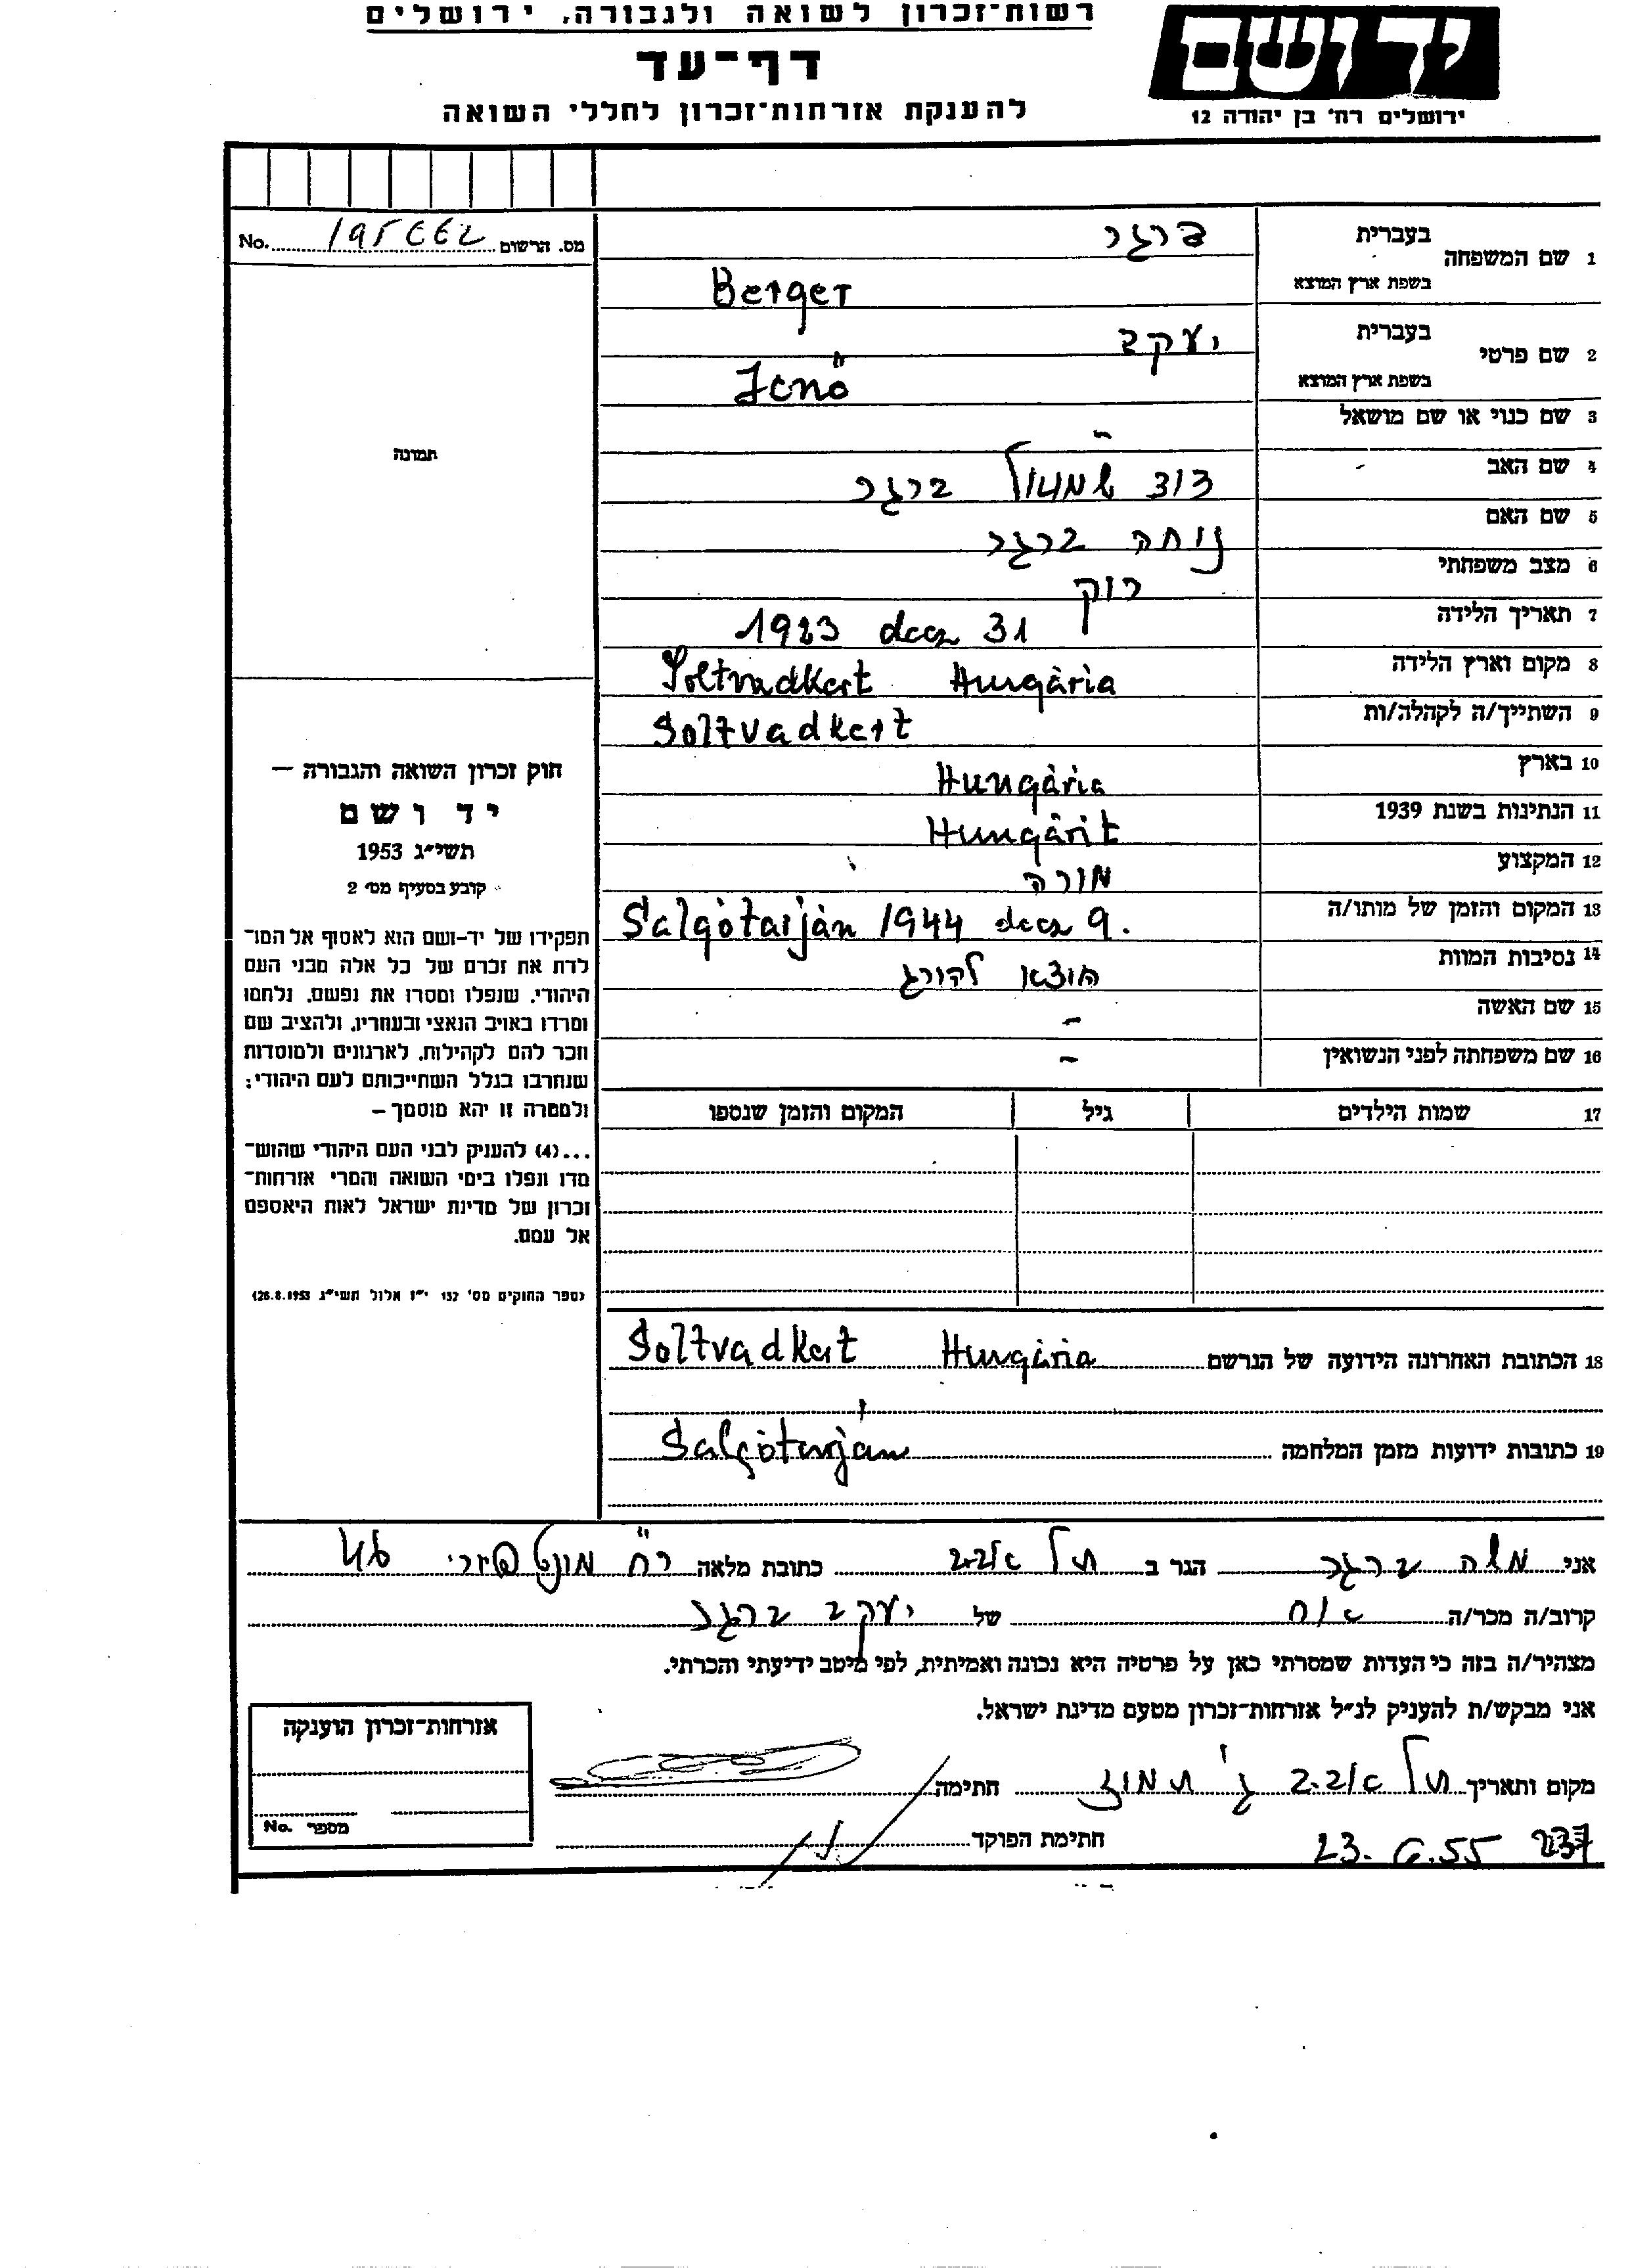 רשות־זכרון לשואה ולגבורה, ירושלים
יד ושם
דף־עד
ירושלים רח' בן יהודה 12
להענקת אזרחות־זכרון לחללי השואה
No. מס. הרשום
1 שם המשפחה
בעברית ברגר
בשפת ארץ המוצא Berger
2 שם פרטי
בעברית יעקב
בשפת ארץ המוצא Jenö
תמונה
3 שם כנוי או שם מושאל -
4 שם האב דוד שמואל ברגר
5 שם האם נוחה ברגר
6 מצב משפחתי רוק
7 תאריך הלידה 1923 decz 31
8 מקום וארץ הלידה Soltvadkert Hungária
9 השתייך/ה לקהלה/ות Soltvadkert
10 בארץ Hungária
11 הנתינות בשנת 1939 Hungárit
12 המקצוע מורה
13 המקום והזמן של מותו/ה Salgótarján 1944 decz 9.
14 נסיבות המוות הוצא להורג
15 שם האשה -
16 שם משפחתה לפני הנשואין -
17 שמות הילדים גיל המקום והזמן שנספו
חוק זכרון השואה והגבורה —
יד ושם
תשי״ג 1953
קובע בסעיף מס׳ 2
תפקידו של יד-ושם הוא לאסוף אל המו־
לדת את זכרם של כל אלה מבני העם
היהודי, שנפלו ומסרו את נפשם, נלחמו
ומרדו באויב הנאצי ובעוזריו, ולהציב שם
וזכר להם לקהילות, לארגונים ולמוסדות
שנחרבו בגלל השתייכותם לעם היהודי;
ולמטרה זו יהא מוסמך —
...(4) להעניק לבני העם היהודי שהוש־
מדו ונפלו בימי השואה והמרי אזרחות־
זכרון של מדינת ישראל לאות היאספם
אל עמם.
(ספר החוקים מס׳ 132 י״ז אלול תשי״ג 28.8.1953)
18 הכתובת האחרונה הידועה של הנרשם Soltvadkert Hungária
19 כתובות ידועות מזמן המלחמה Salgótarján
אני משה ברגר הגר ב תל אביב כתובת מלאה רח מונטפיורי 46
קרוב/ה מכר/ה אח של יעקב ברגר
מצהיר/ה בזה כי העדות שמסרתי כאן על פרטיה היא נכונה ואמיתית, לפי מיטב ידיעתי והכרתי.
אני מבקש/ת להעניק לנ״ל אזרחות־זכרון מטעם מדינת ישראל.
מקום ותאריך תל אביב ג' תמוז חתימה
23. 6.55 237 חתימת הפוקד
אזרחות־זכרון הוענקה
No. מספר